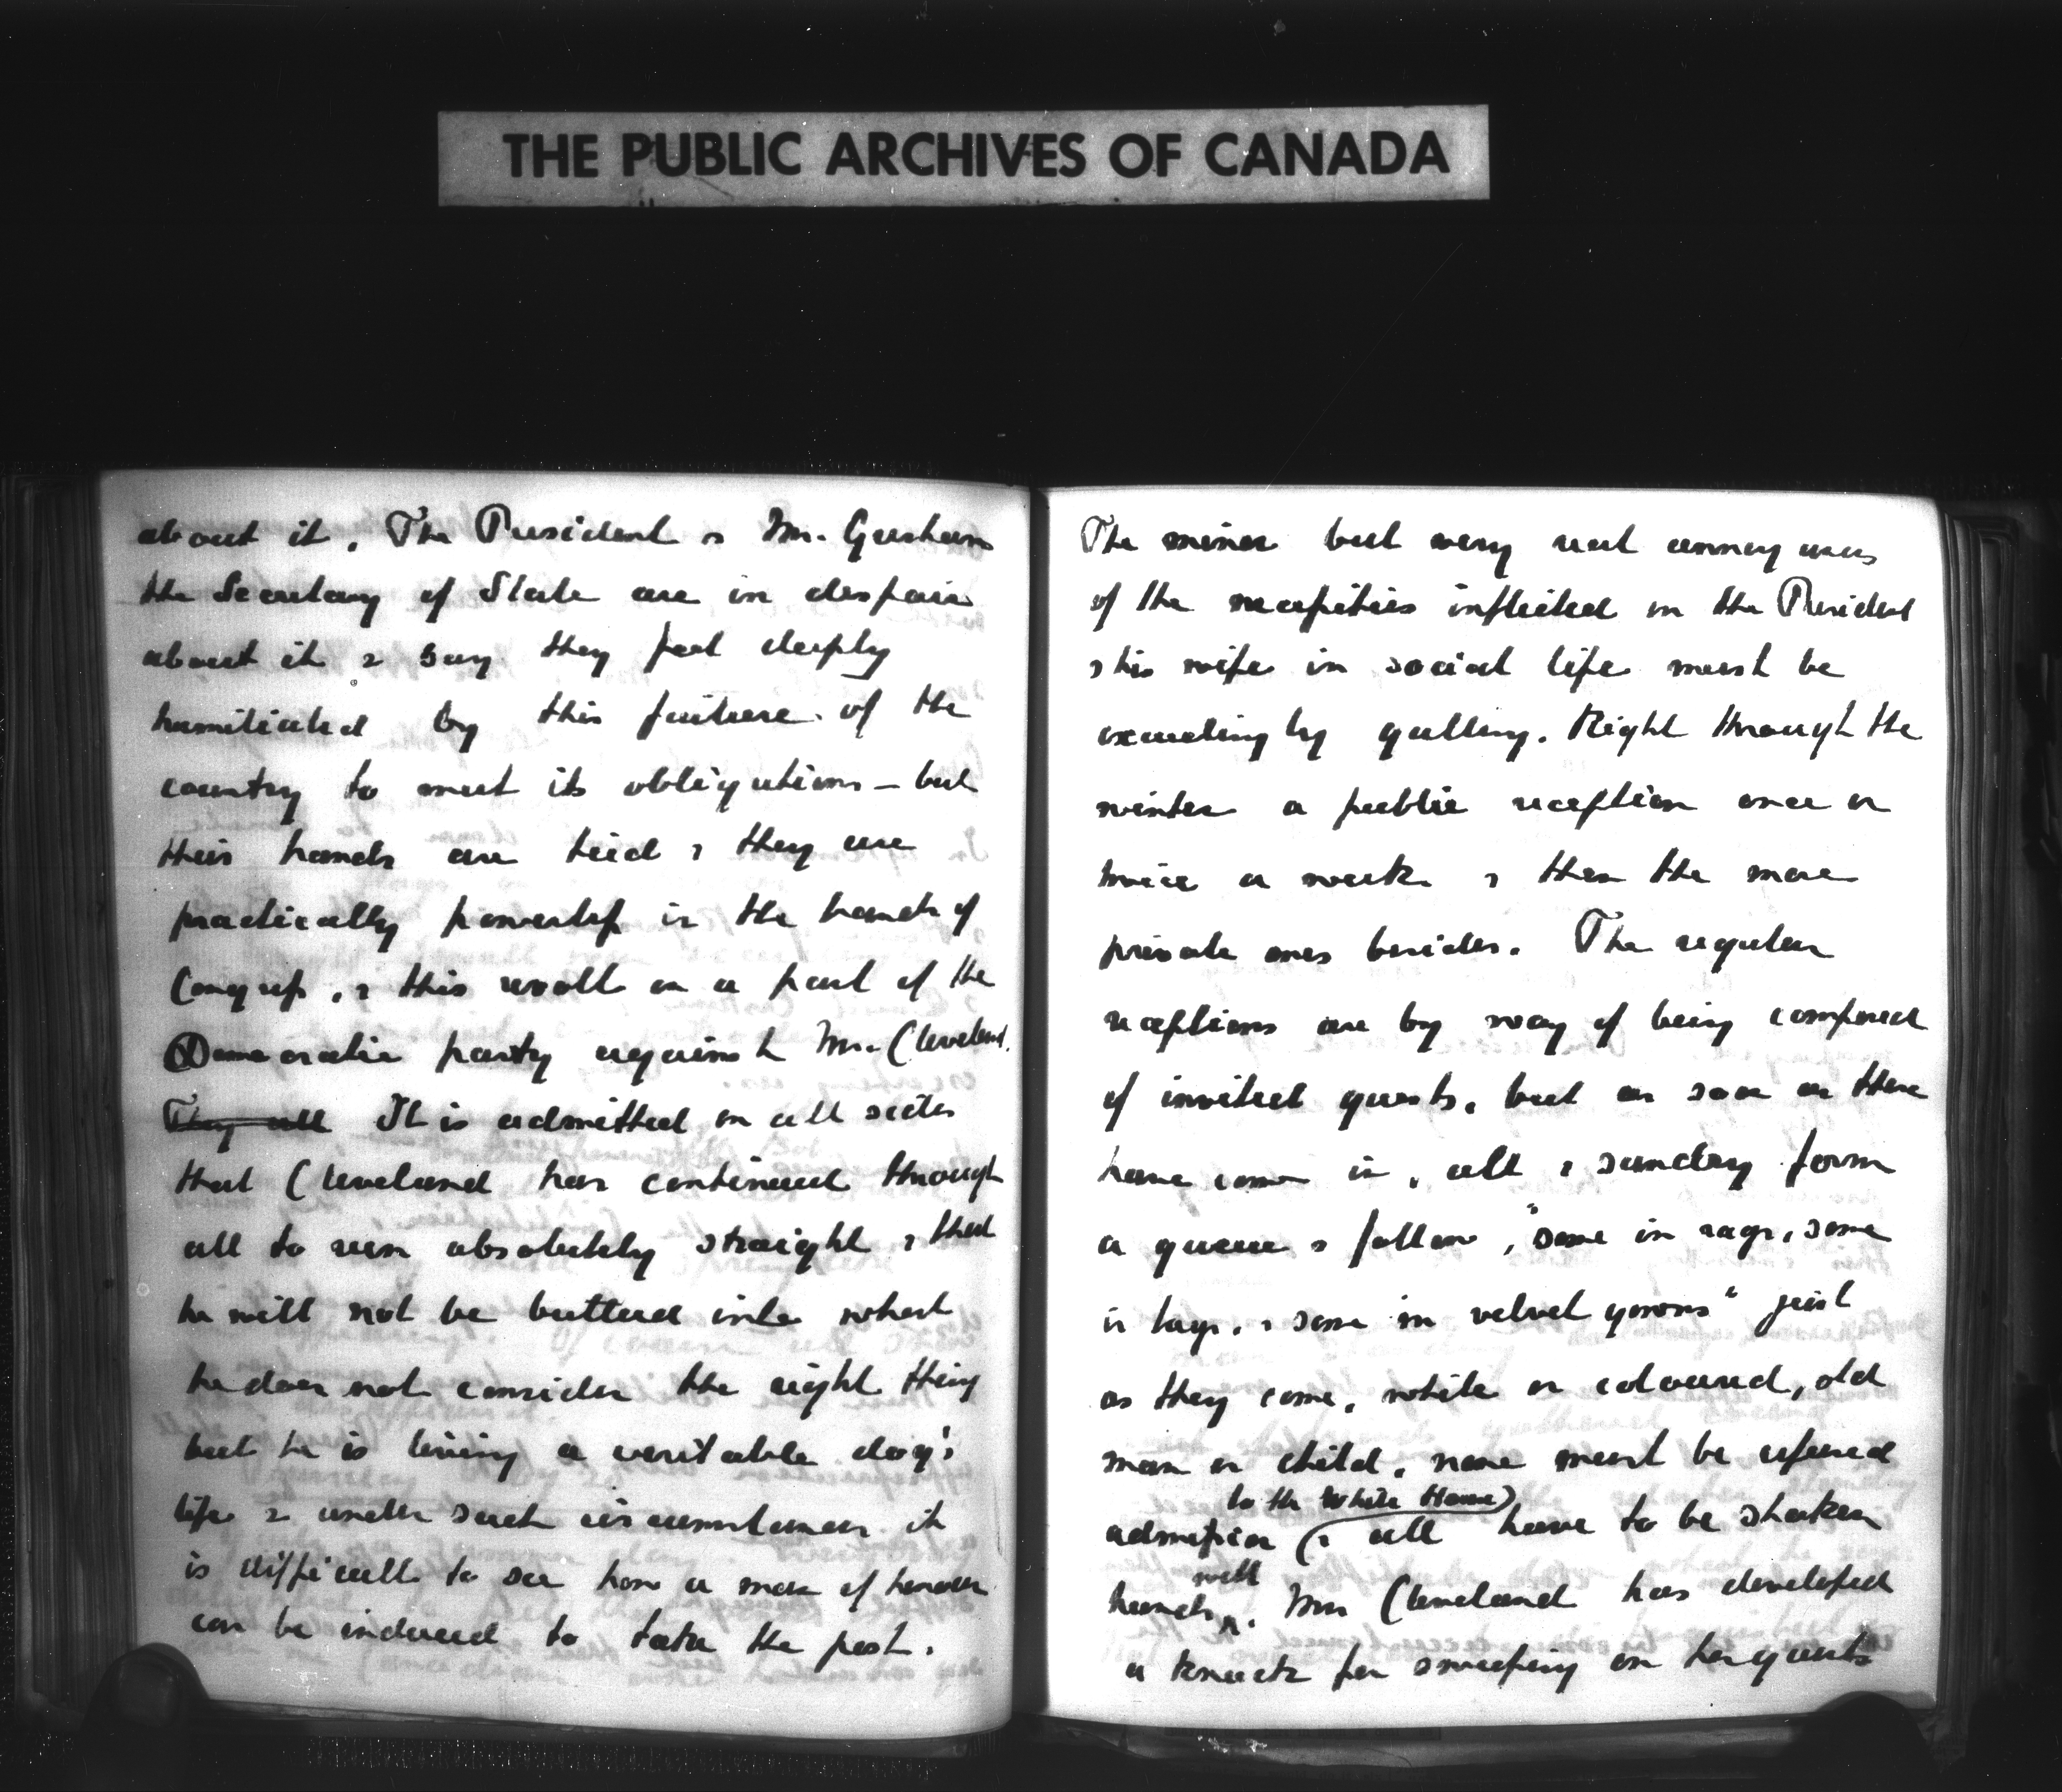 THE PUBLIC ARCHIVES OF CANADA
about it. The President & Mr. Gresham
the Secretary of State are in despair
about it & say they feel deeply
humiliated by this failure of the
country to meet its obligations – but
their hands are tied & they are
practically powerless in the hands of
Congress, & this revolt on a part of the
Democratic party against Mr. Cleveland.
They all It is admitted on all sides
that Cleveland has continued through
all to run absolutely straight & that
he will not be buttered into what
he does not consider the right thing
but he is living a veritable dog's
life & under such circumstances it
is difficult to see how a man of honour
can be induced to take the post.
The minor but very real annoyances
of the necessities inflicted on the President
& his wife in social life must be
exceedingly galling. Right through the
winter a public reception once or
twice a week & then the more
private ones besides. The regular
receptions are by way of being composed
of invited guests, but as soon as these
have come in, all & sundry form
a queue & follow, "some in rags, some
in tags, & some in velvet gowns" just
as they come, white or coloured, old
man or child, none must be refused
admission (to the White House) & all have to be shaken
hands with. Mrs Cleveland has developed
a knack for sweeping on her guests